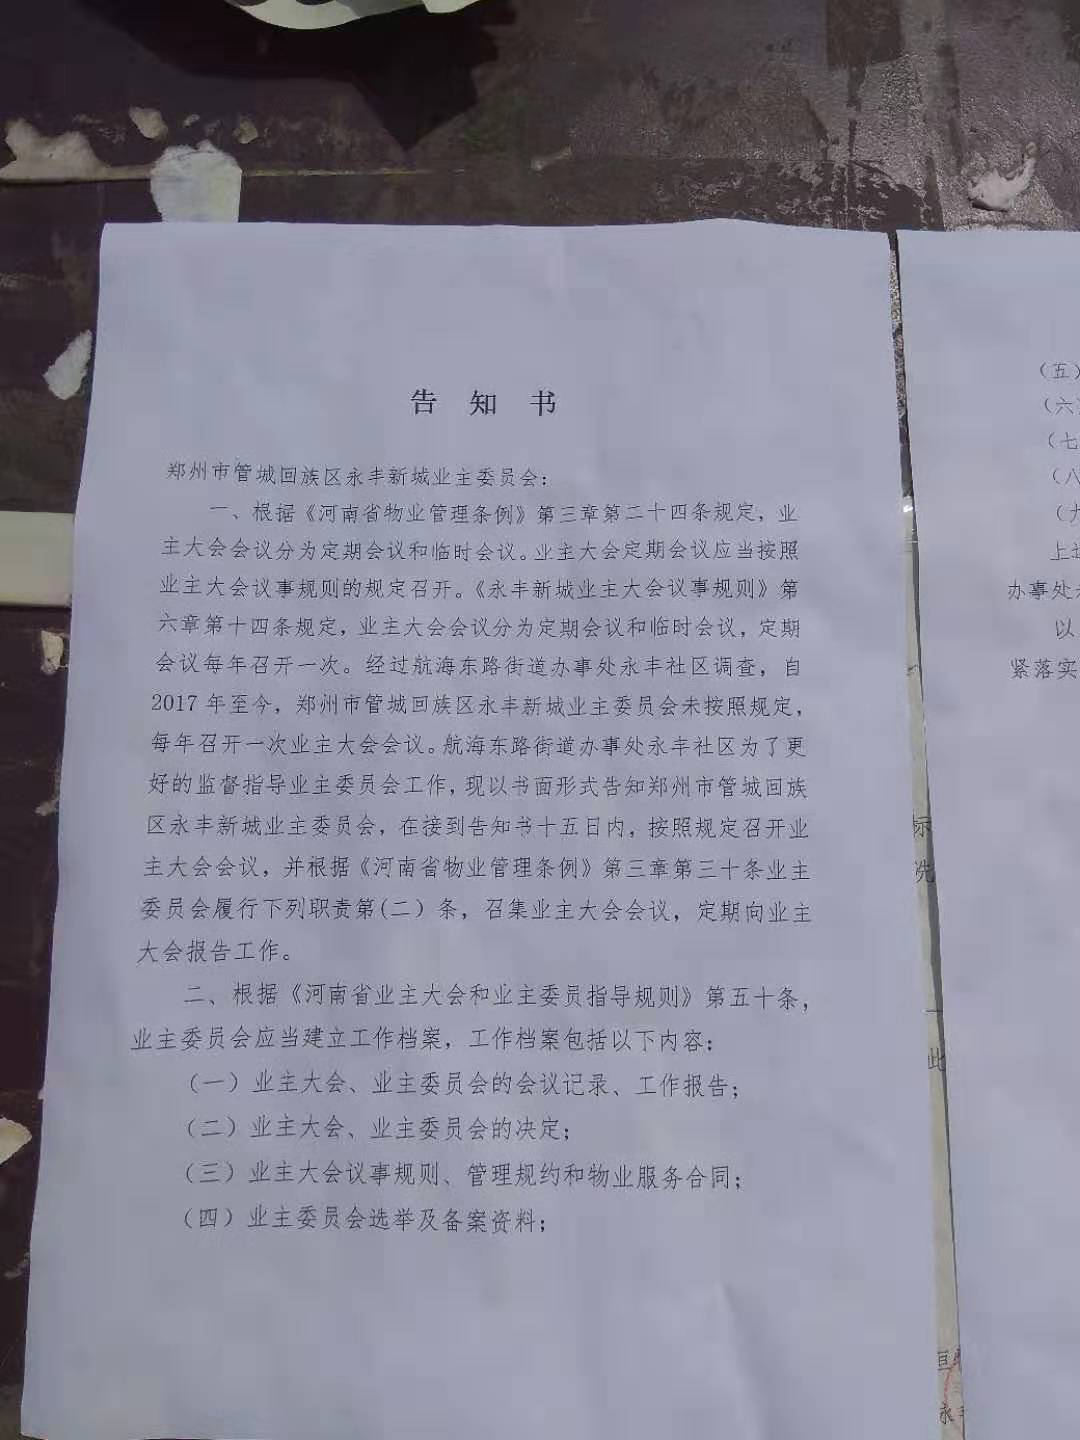 告知书
郑州市管城回族区永丰新城业主委员会：
一、根据《河南省物业管理条例》第三章第二十四条规定，业
主大会会议分为定期会议和临时会议。业主大会定期会议应当按照
业主大会议事规则的规定召开。《永丰新城业主大会议事规则》第
六章第十四条规定，业主大会会议分为定期会议和临时会议，定期
会议每年召开一次。经过航海东路街道办事处永丰社区调查，自
2017年至今，郑州市管城回族区永丰新城业主委员会未按照规定，
每年召开一次业主大会会议。航海东路街道办事处永丰社区为了更
好的监督指导业主委员会工作，现以书面形式告知郑州市管城回族
区永丰新城业主委员会，在接到告知书十五日内，按照规定召开业
主大会会议，并根据《河南省物业管理条例》第三章第三十条业主
委员会履行下列职责第(二)条，召集业主大会会议，定期向业主
大会报告工作。
二、根据《河南省业主大会和业主委员指导规则》第五十条，
业主委员会应当建立工作档案，工作档案包括以下内容：
（一）业主大会、业主委员会的会议记录、工作报告；
（二）业主大会、业主委员会的决定；
（三）业主大会议事规则、管理规约和物业服务合同；
（四）业主委员会选举及备案资料；
（五）
（六
（七
（八
（九
上
办事处
以
紧落实
标
洗
此